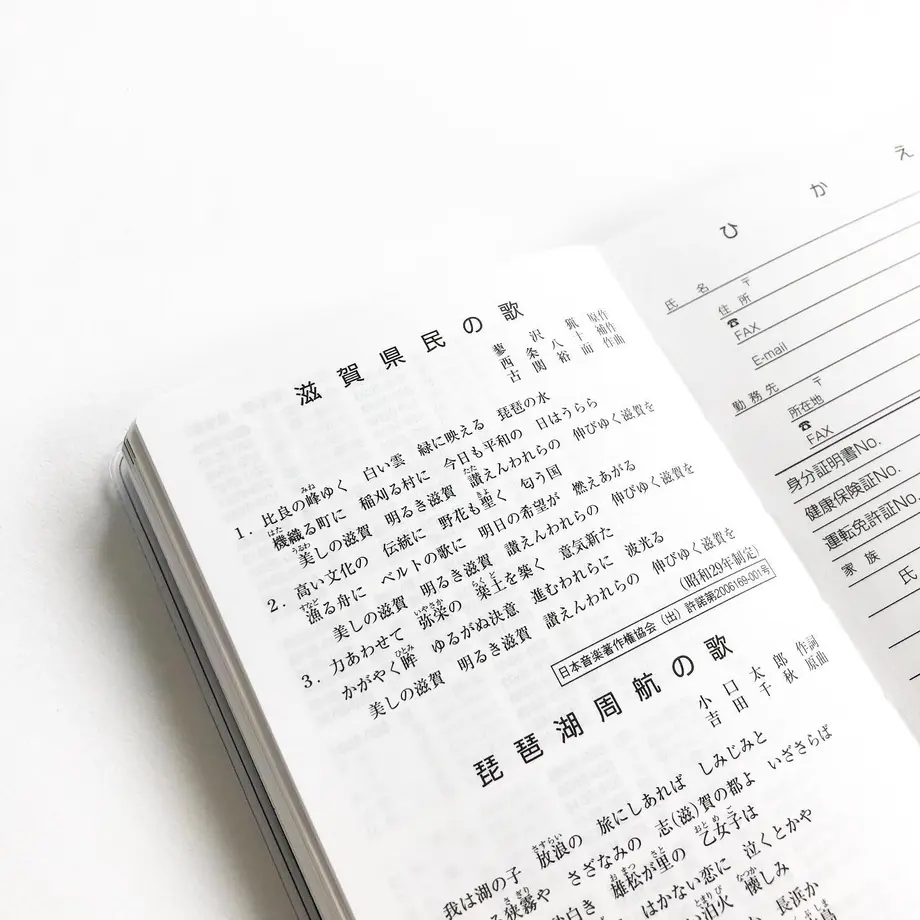 滋賀県民の歌
蓼沢珮 原作
西条八十 補作
古関裕而 作曲
1. 比良の峰ゆく 白い雲 緑に映える 琵琶の水
機織る町に 稲刈る村に 今日も平和の 日はうらら
美しの滋賀 明るき滋賀 讃えんわれらの 伸びゆく滋賀を
2. 高い文化の 伝統に 野花も聖く 匂う国
漁る舟に ベルトの歌に 明日の希望が 燃えあがる
美しの滋賀 明るき滋賀 讃えんわれらの 伸びゆく滋賀を
3. 力あわせて 弥栄の 楽土を築く 意気新た
かがやく眸 ゆるがぬ決意 進むわれらに 波光る
美しの滋賀 明るき滋賀 讃えんわれらの 伸びゆく滋賀を
(昭和29年制定)
日本音楽著作権協会 (出) 許諾第2006169-001号
琵琶湖周航の歌
小口太郎 作詞
吉田千秋 原曲
我は湖の子 放浪の 旅にしあれば しみじみと
る狭霧や さざなみの 志(滋)賀の都よ いざさらば
白き 雄松が里の 乙女子は
はかない恋に 泣くとかや
火 懐しみ
長浜か
ひかえ
氏名
住所 〒
☎
FAX
E-mail
勤務先
所在地 〒
☎
FAX
身分証明書No.
健康保険証No.
運転免許証No.
家族
氏